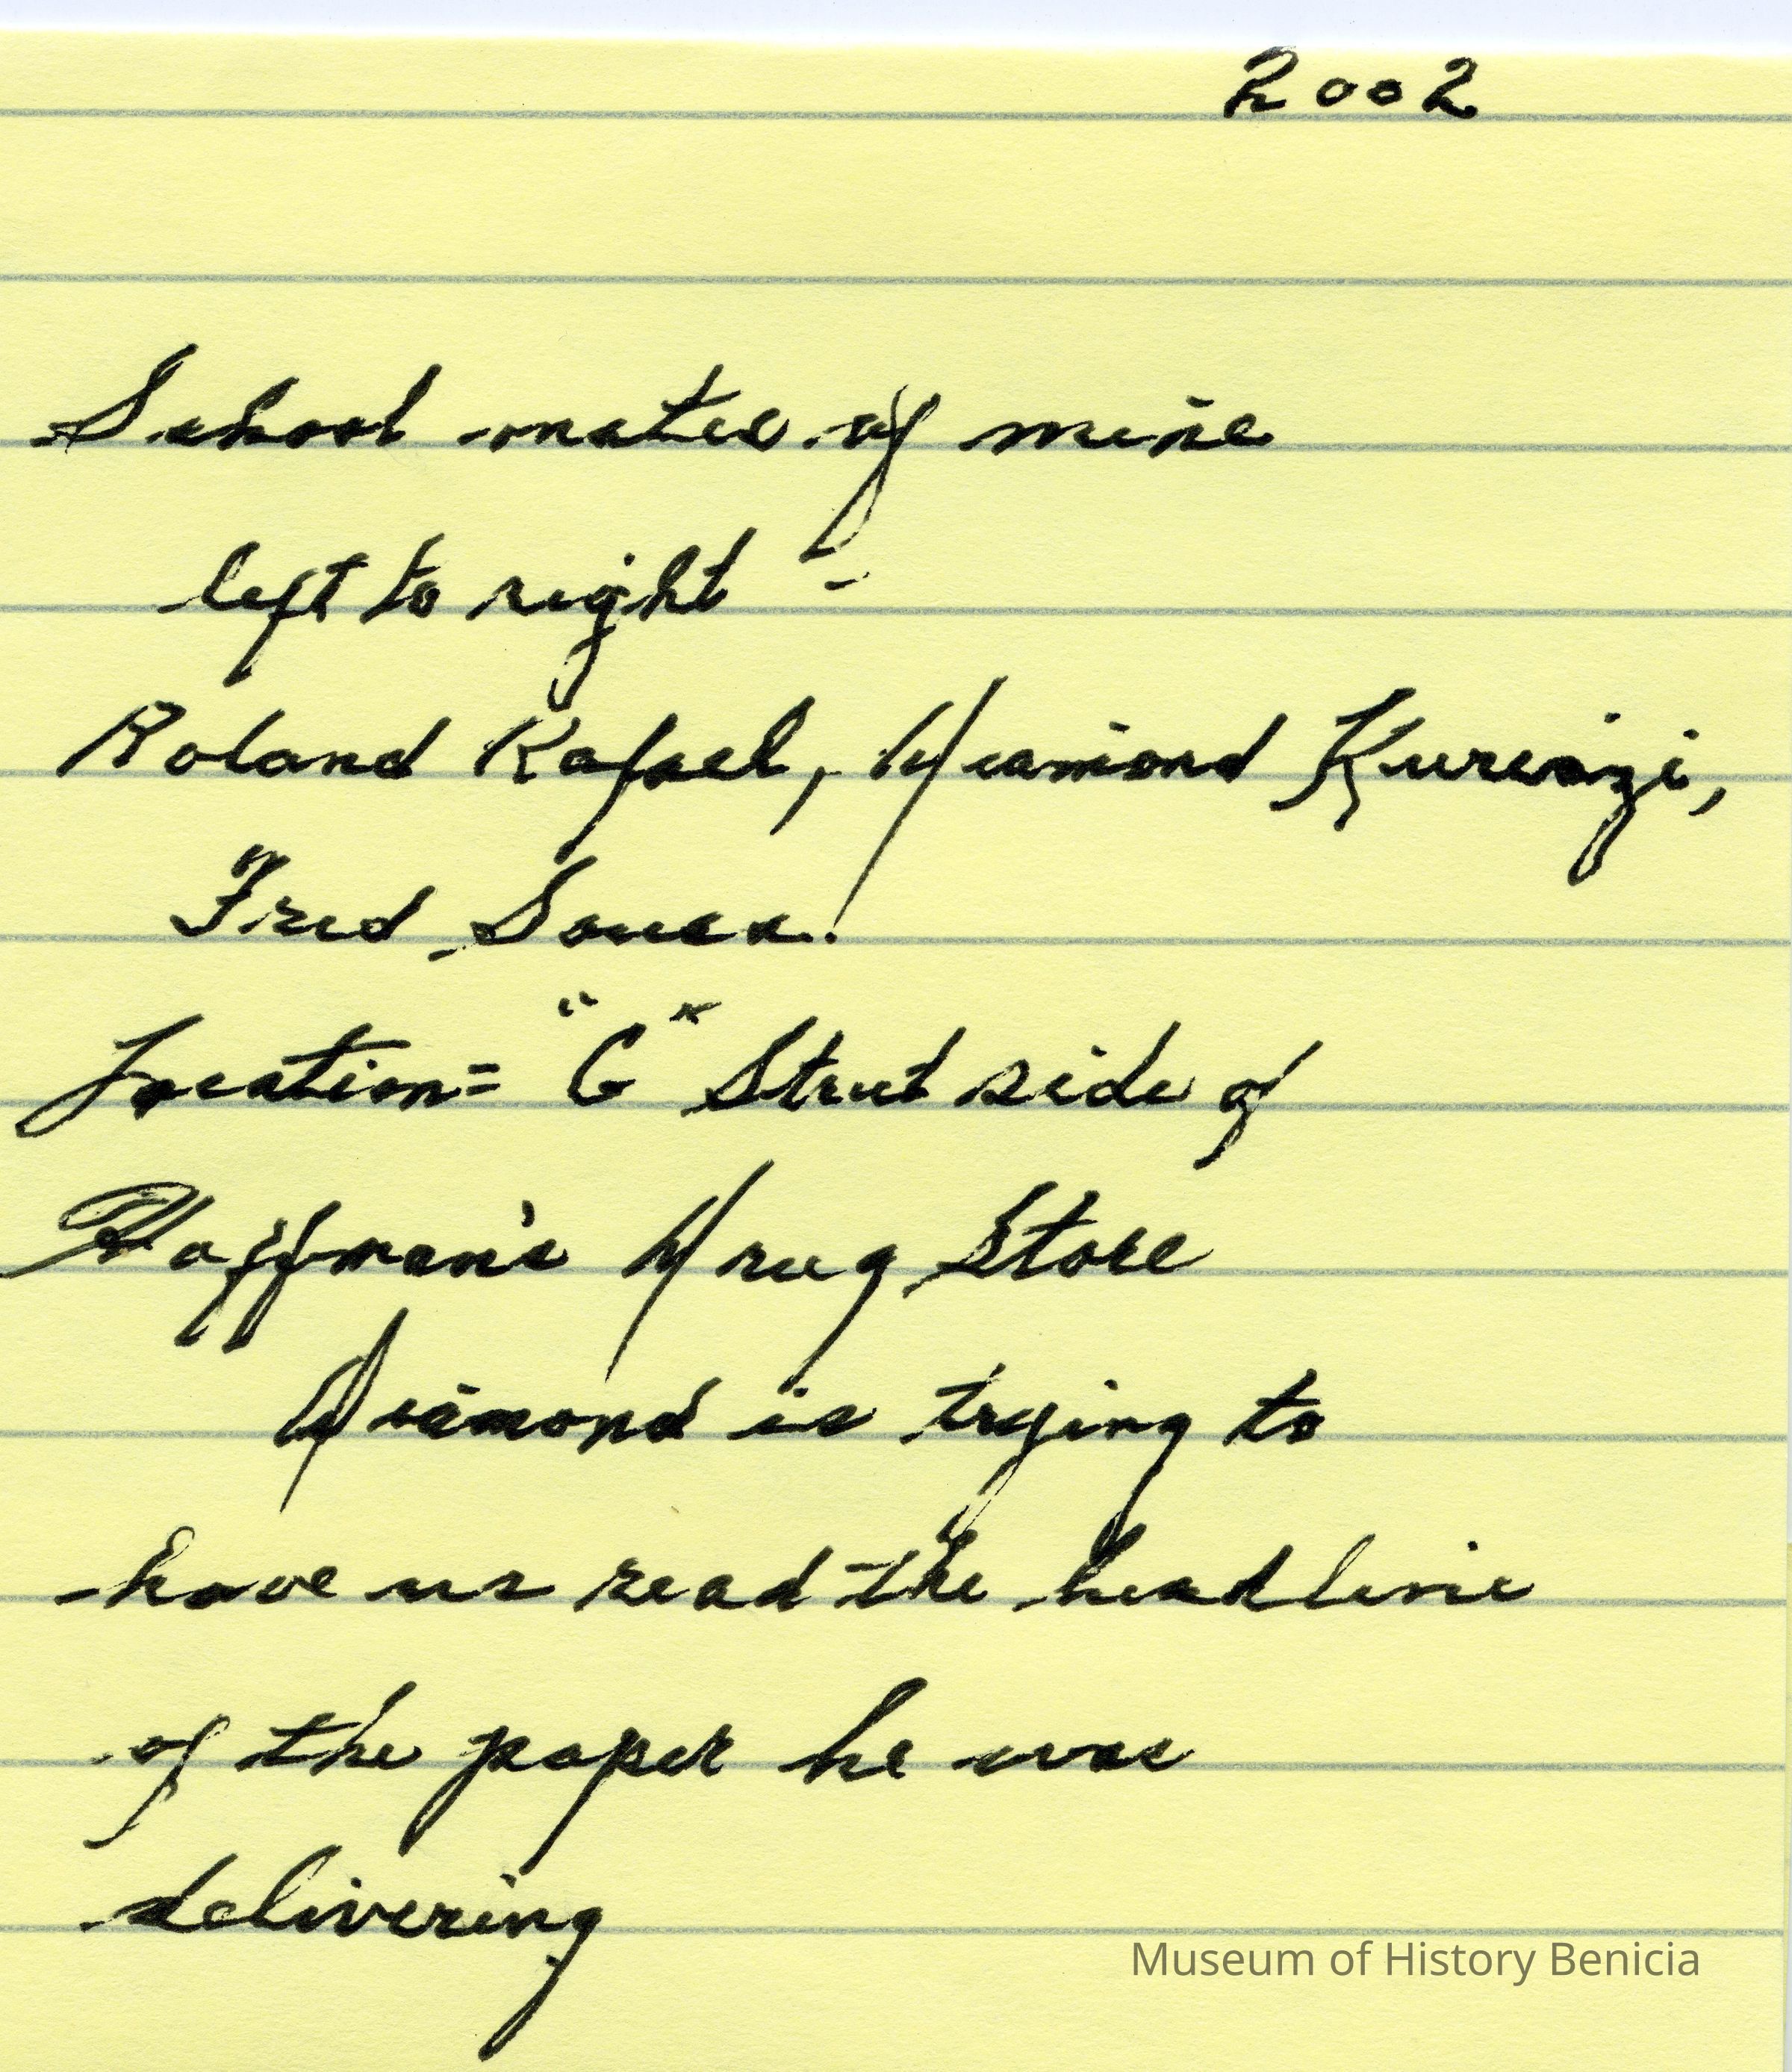 2002
School mates of mine
left to right -
Roland Rafael, Diamond Kurvazi,
Fred Sousa.
Location = "G" Street side of
Hoffman's Drug Store
Diamond is trying to
have us read the headline
of the paper he was
delivering
Museum of History Benicia